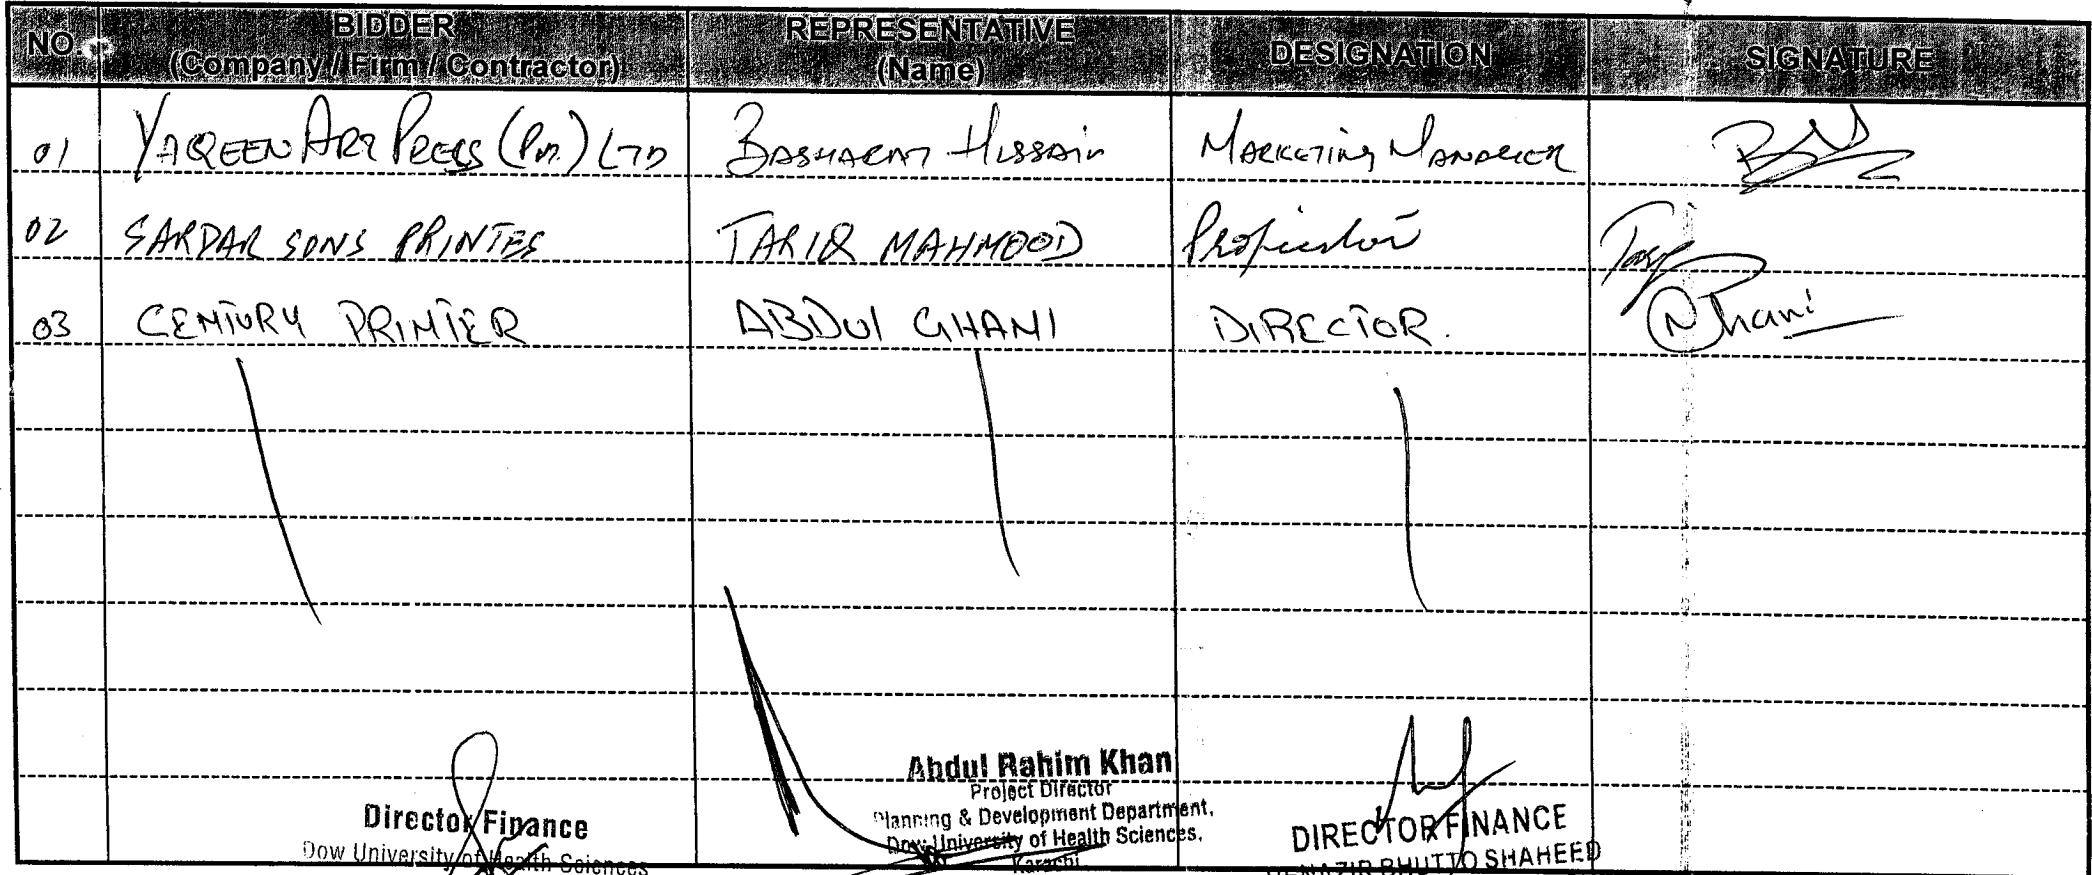 NO.
BIDDER
(Company / Firm / Contractor)
REPRESENTATIVE
(Name)
DESIGNATION
SIGNATURE
01 YAQEEN ART PRESS (Pvt.) LTD BASHARAT HUSSAIN MARKETING MANAGER
02 SARDAR SONS PRINTES TARIQ MAHMOOD Proprietor
03 CENTURY PRINTER ABDUL GHANI DIRECTOR. Ghani
Director Finance
Dow University of Health Sciences
Abdul Rahim Khan
Project Director
Planning & Development Department,
Dow University of Health Sciences,
Karachi
DIRECTOR FINANCE
BENAZIR BHUTTO SHAHEED